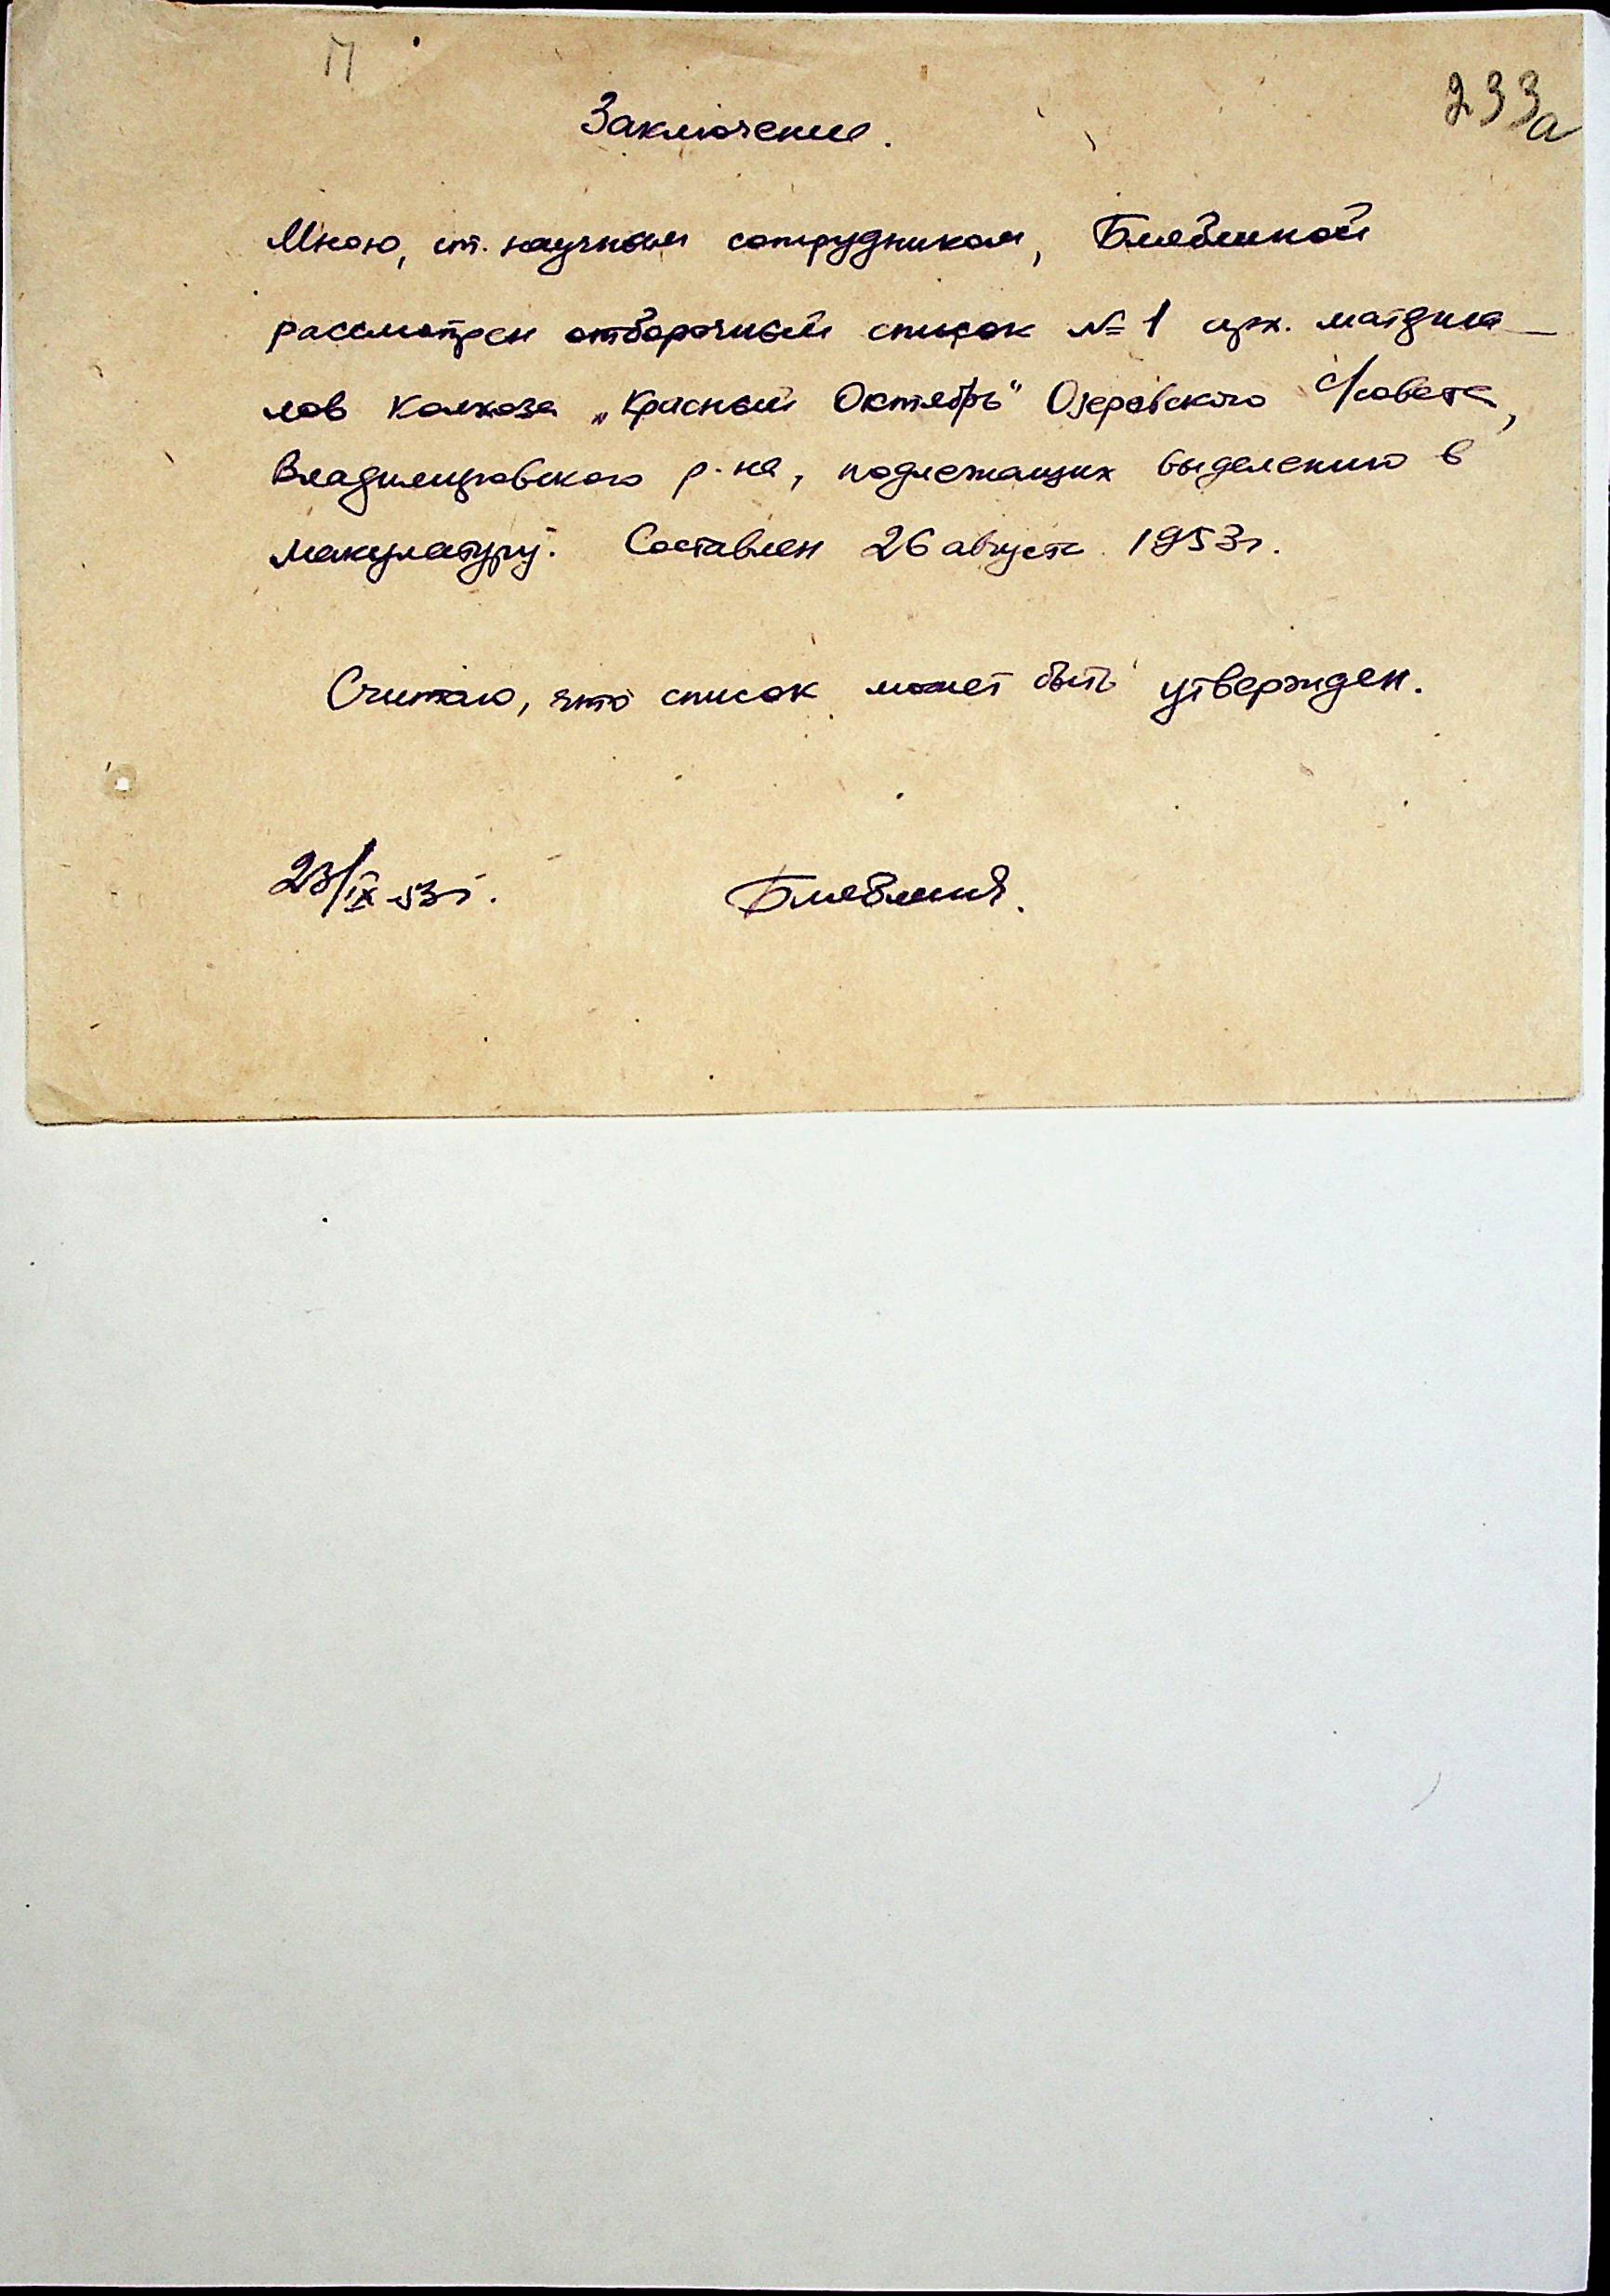 П
233а
Заключение.
Мною, ст. научным сотрудником,
рассмотрен отборочный список № 1 арх. материа-
лов колхоза „Красный Октябрь" Озеровского с/совета,
Владимирецкого р-на, подлежащих выделению в
макулатуру. Составлен 26 августа 1953г.
Считаю, что список может быть утвержден.
23/IX-53г.